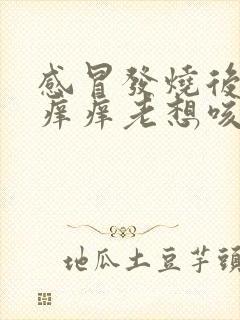 感冒發燒後
痒痒老想咳
地瓜土豆芋頭